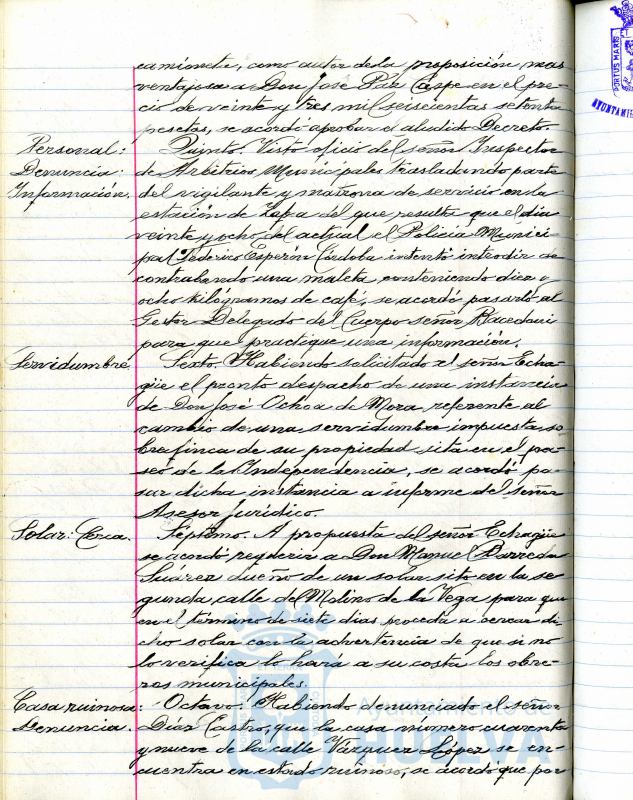 camioneta, como autor de la proposición mas
ventajosa a Don José Paz Caspe en el pre-
cio de veinte y tres mil seiscientas setenta
pesetas, se acordó aprobar el aludido Decreto.
Personal:
Denuncia:
Información.
Quinto. Visto oficio del señor Inspector
de Arbitrios Municipales trasladando parte
del vigilante y matrona de servicio en la
estación de Zafra del que resulta que el dia
veinte y ocho del actual el Policia Munici-
pal Federico Esperin Córdoba intentó introdir de
contrabando una maleta conteniendo diez y
ocho kilógramos de café, se acordó pasarlo al
Gestor Delegado del Cuerpo señor
para que practique una información.
Servidumbre.
Sexto. Habiendo solicitado el señor Echa-
güe el pronto despacho de una instancia
de Don José Ochoa de Mora referente al
cambio de una servidumbre impuesta so
bre finca de su propiedad sita en el pa-
seo de la Independencia, se acordó pa-
sar dicha instancia a informe del señor
Asesor Jurídico.
Solar: Cerca.
Septimo. A propuesta del señor Echagüe
se acordó requerir a Don Manuel Barreda
Suárez dueño de un solar sito en la se-
gunda calle del Molino de la Vega para que
en el término de siete dias proceda a cercar di-
cho solar con la advertencia de que si no
lo verifica lo hará a su costa los obre-
ros municipales.
Casa ruinosa:
Denuncia.
Octavo: Habiendo denunciado el señor
Díaz Castro, que la casa número cuarenta
y nueve de la calle Vázquez López se en-
cuentra en estado ruinoso, se acordó que por
PORTUS MARIS
AYUNTAMIE
Ayuntamiento de
HUELVA